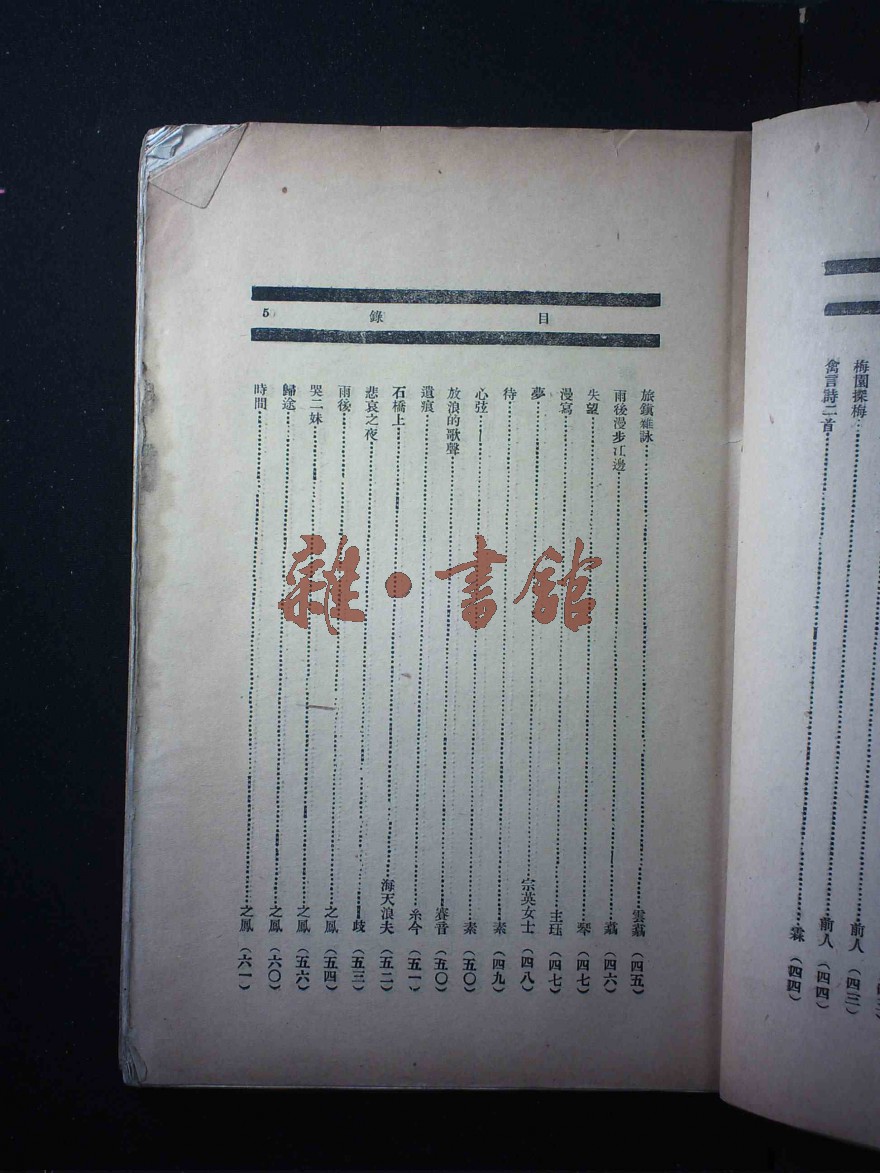 目錄
5
旅鎭雜詠……雲蘊（四五）
雨後漫步江邊……蘊（四六）
失望……琴（四七）
漫寫……主珏（四七）
夢……宗英女士（四八）
待……素（四九）
心弦……素（五〇）
放浪的歌聲……賽音（五〇）
遺痕……糸今（五一）
石橋上……海天浪夫（五二）
悲哀之夜……歧（五三）
雨後……之鳳（五四）
哭二妹……之鳳（五六）
歸途……之鳳（六〇）
時間……之鳳（六一）
梅園探梅……前人（四三）
禽言詩二首……前人（四四）
霖（四四）
雜·書館